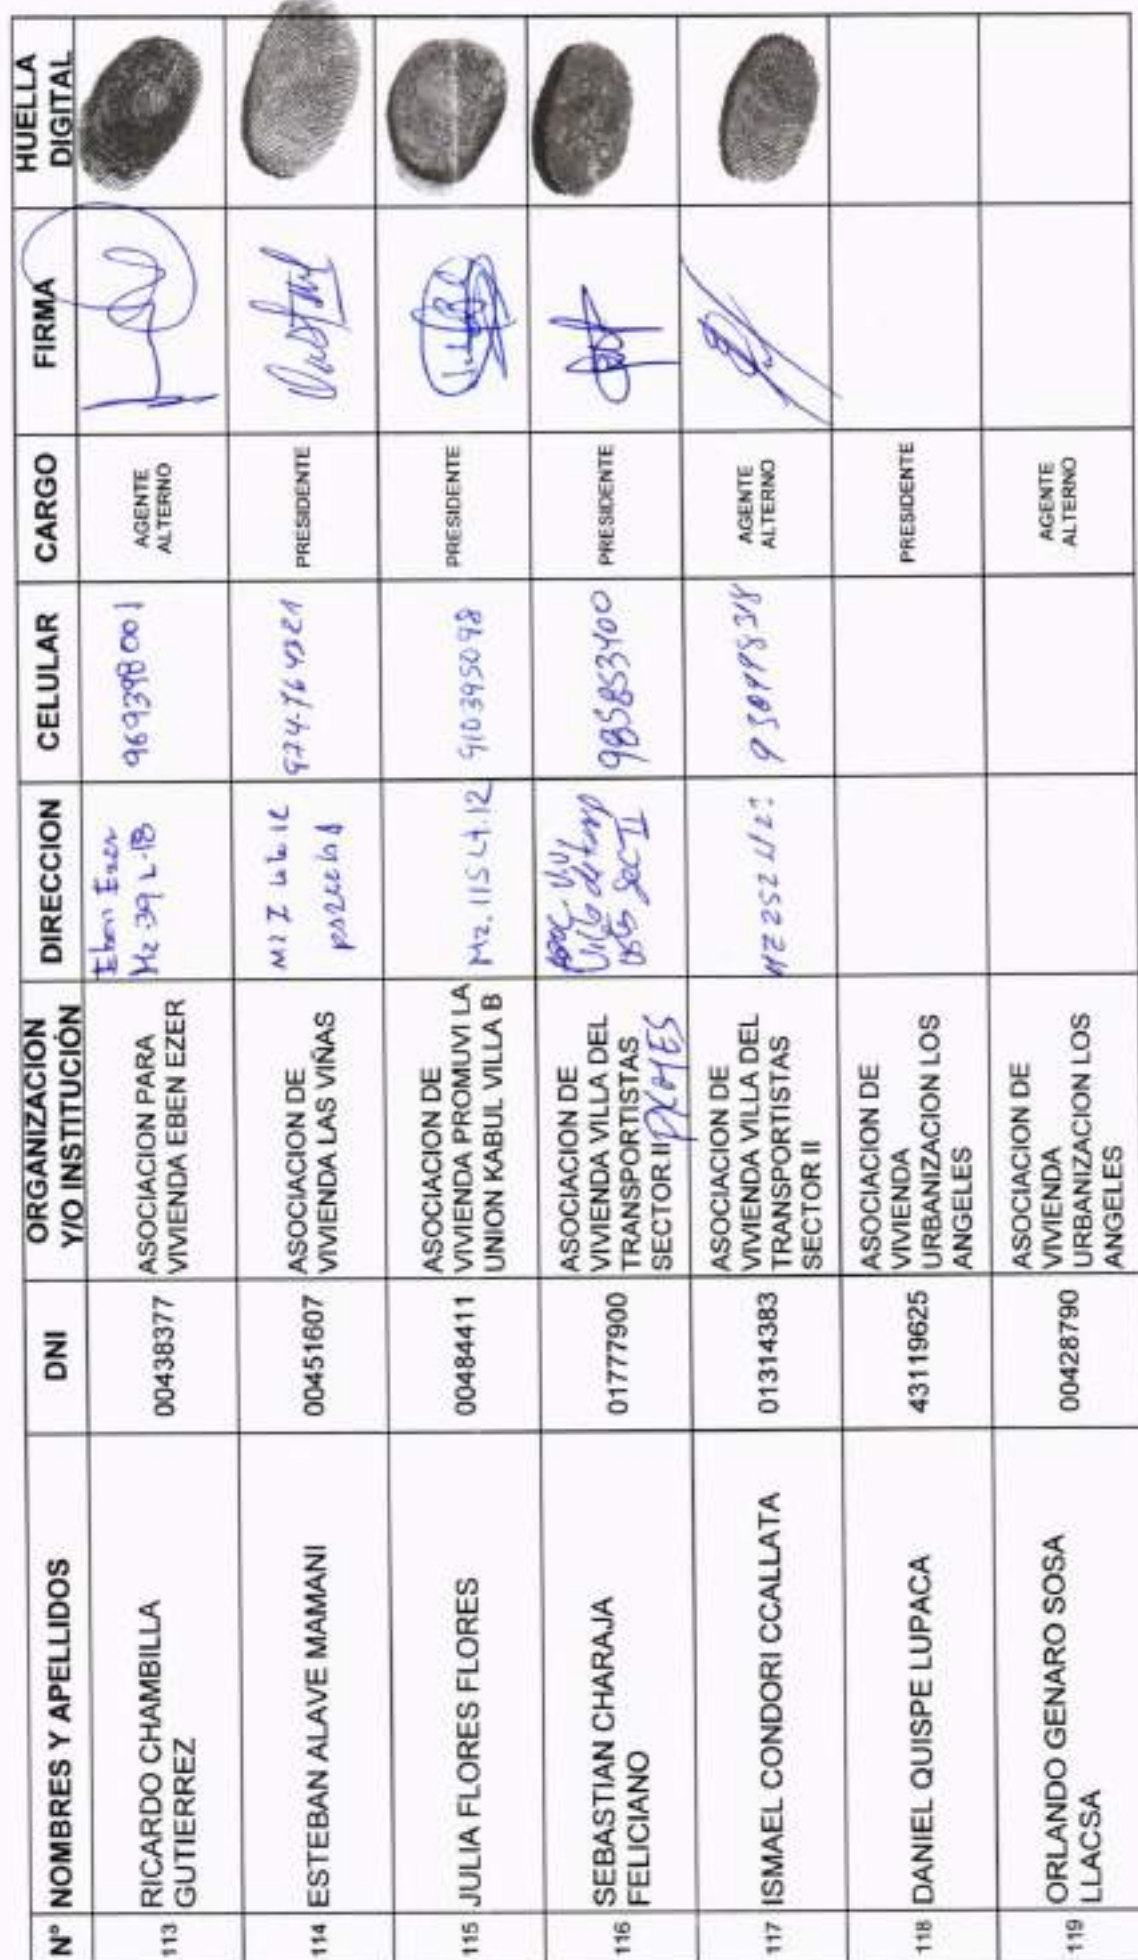 Nº NOMBRES Y APELLIDOS DNI ORGANIZACIÓN Y/O INSTITUCIÓN DIRECCION CELULAR CARGO FIRMA HUELLA DIGITAL
113 RICARDO CHAMBILLA
GUTIERREZ
00438377
ASOCIACION PARA
VIVIENDA EBEN EZER
Eben Ezer
Mz 39 L-18
969398001
AGENTE
ALTERNO
114 ESTEBAN ALAVE MAMANI
00451607
ASOCIACION DE
VIVIENDA LAS VIÑAS
PRESIDENTE
115 JULIA FLORES FLORES
00484411
ASOCIACION DE
VIVIENDA PROMUVI LA
UNION KABUL VILLA B
Mz. 115 Lt. 12
910395098
PRESIDENTE
116 SEBASTIAN CHARAJA
FELICIANO
01777900
ASOCIACION DE
VIVIENDA VILLA DEL
TRANSPORTISTAS
SECTOR II
Sec II
985853400
PRESIDENTE
117 ISMAEL CONDORI CCALLATA
01314383
ASOCIACION DE
VIVIENDA VILLA DEL
TRANSPORTISTAS
SECTOR II
MZ 252
AGENTE
ALTERNO
118 DANIEL QUISPE LUPACA
43119625
ASOCIACION DE
VIVIENDA
URBANIZACION LOS
ANGELES
PRESIDENTE
119 ORLANDO GENARO SOSA
LLACSA
00428790
ASOCIACION DE
VIVIENDA
URBANIZACION LOS
ANGELES
AGENTE
ALTERNO